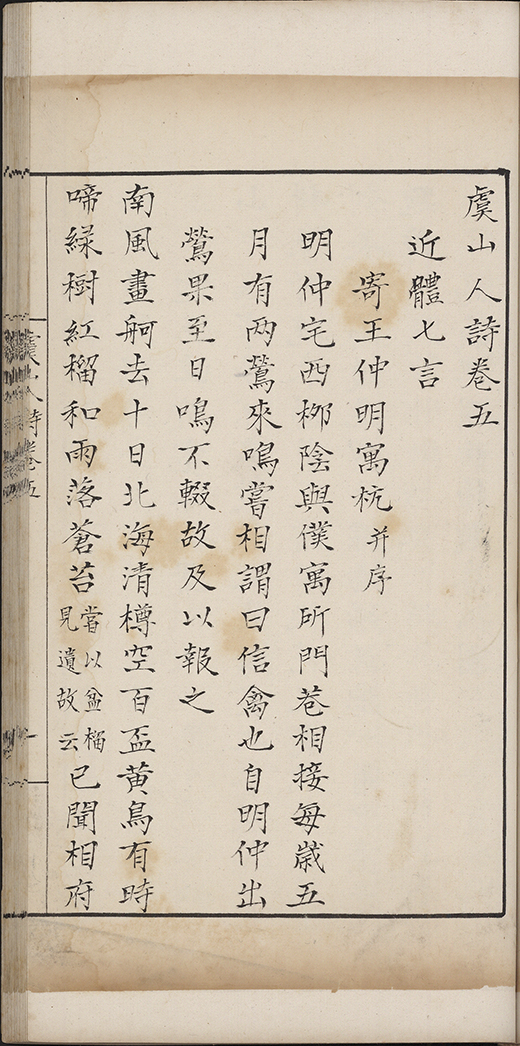 虞山人詩卷五
近體七言
寄王仲明寓杭 并序
明仲宅西桞陰與僕寓所門巷相接每歳五
月有两鶯來鳴嘗相謂曰信禽也自明仲出
鶯果至日鳴不輟故及以報之
南風畫舸去十日北海清樽空百盃黄鳥有時
啼緑樹紅榴和雨落蒼苔 嘗以盆榴見遺故云 已聞相府